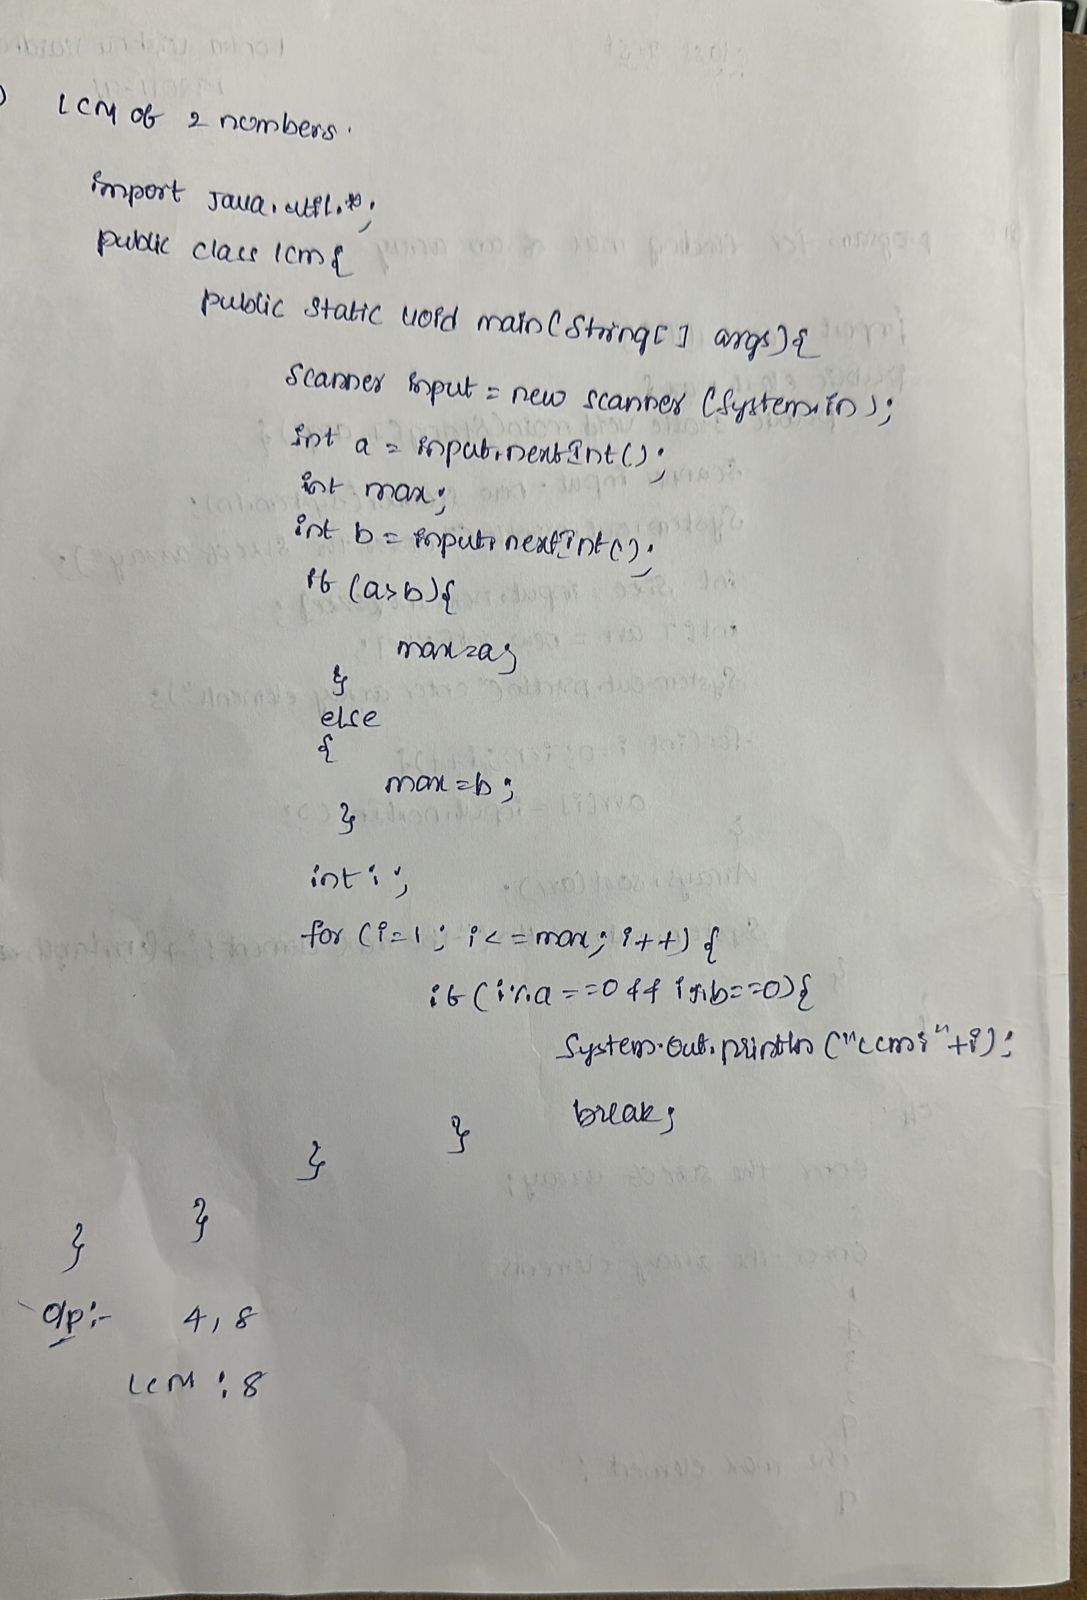 LCM of 2 numbers.
import java.util.*;
public class lcm{
public static void main(String[] args){
Scanner input = new scanner (System.in);
int a = input.nextInt();
int max;
int b = input.nextInt();
if (a>b){
max=a;
}
else
{
max=b;
}
int i;
for (i=1; i<=max; i++) {
if (i%a==0 && i%b==0){
System.out.println("LCM:"+i);
break;
}
}
}
}
O/p:- 4, 8
LCM : 8